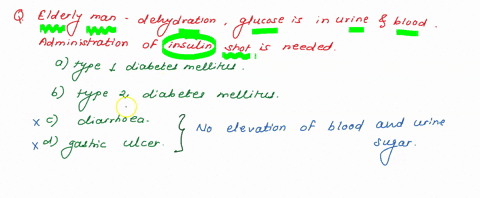 Q Elderly man - dehydration, glucose is in urine & blood.
Administration of insulin shot is needed.
a) type 1 diabetes mellitus.
b) type 2 diabetes mellitus.
x c) diarrhoea.
x d) gastric ulcer.
No elevation of blood and urine
sugar.